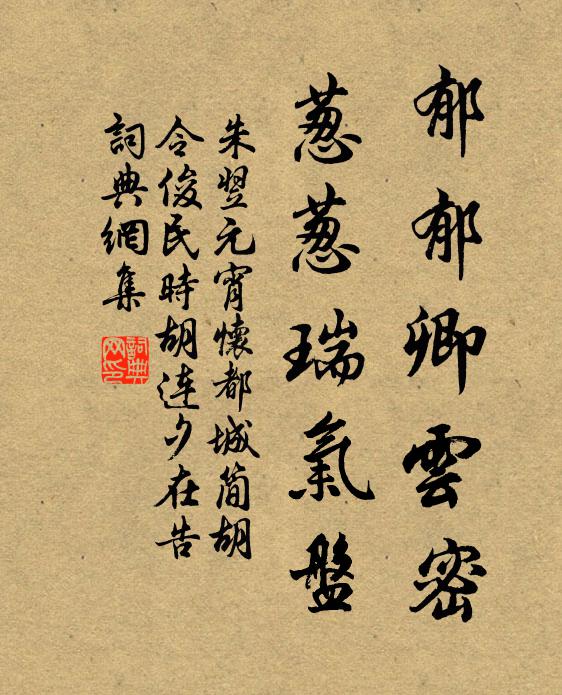 郁郁卿雲密
葱葱瑞氣盤
朱翌元宵懷都城簡胡
令俊民時胡連夕在告
詞典網集
詞典网印